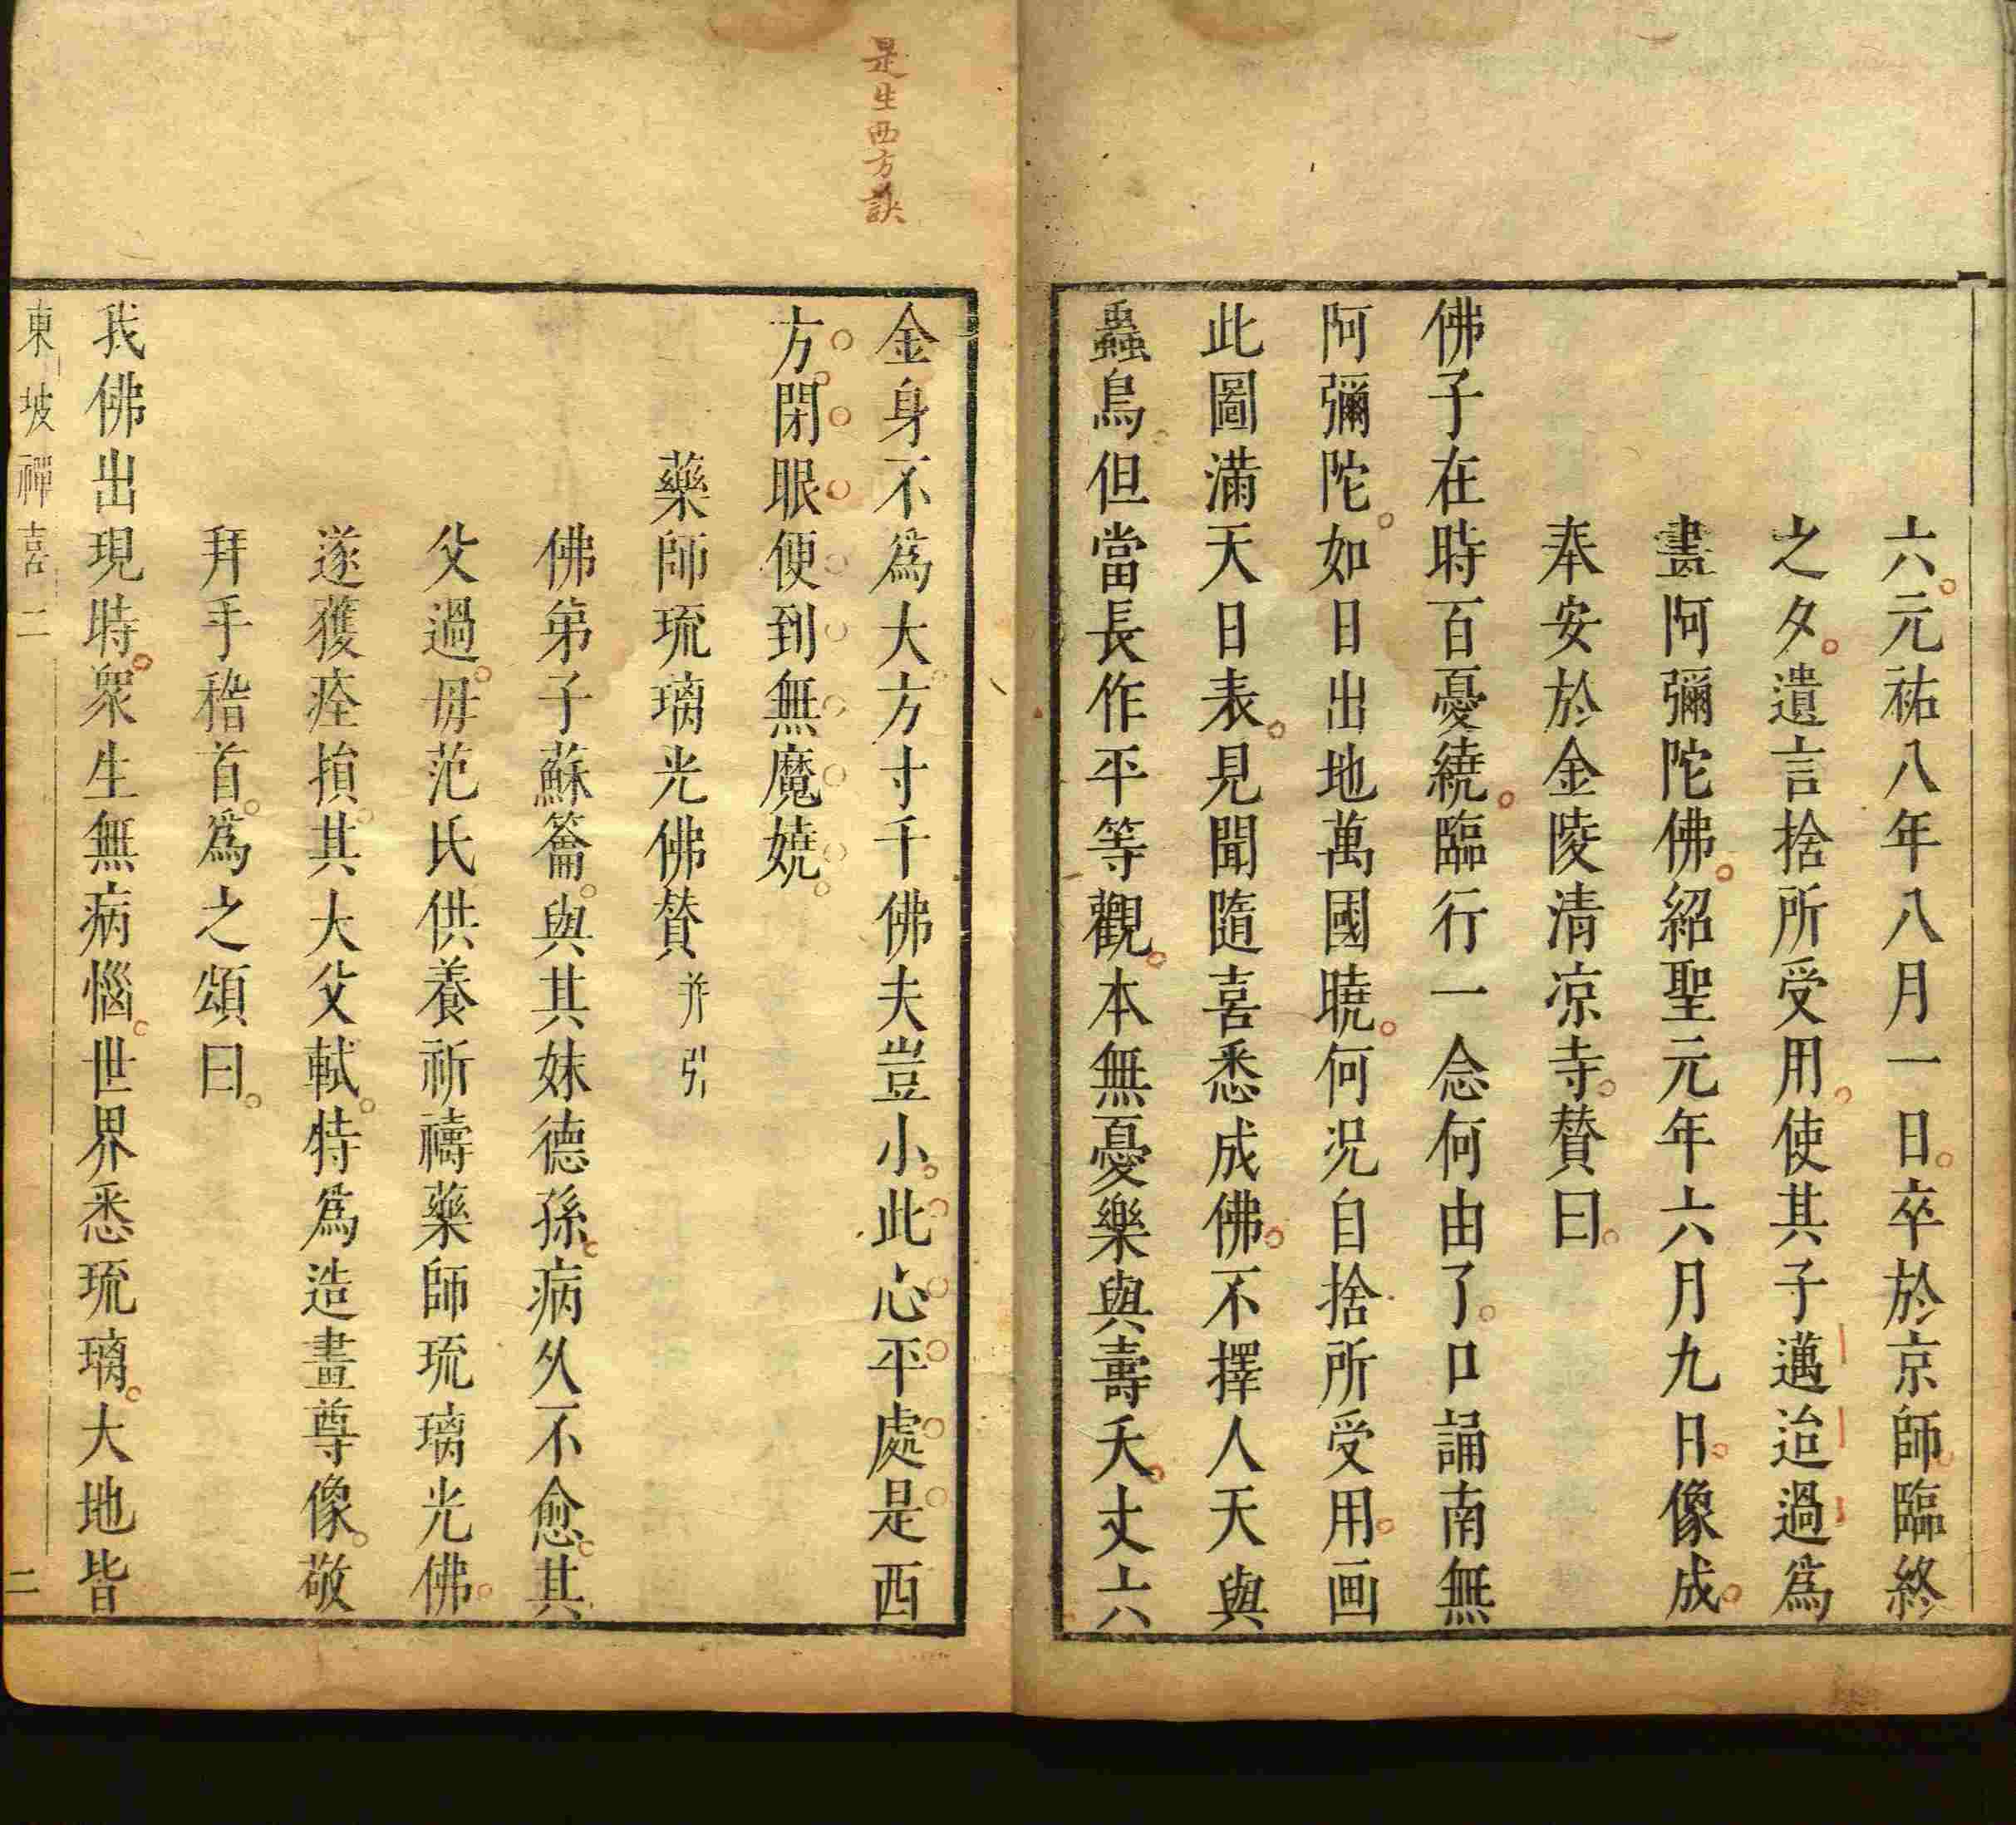 六元祐八年八月一日卒於京師臨終
之夕遺言捨所受用使其子邁迨過爲
畫阿彌陀佛紹聖元年六月九日像成
奉安於金陵清凉寺賛曰
佛子在時百憂繞臨行一念何由了口誦南無
阿彌陀如日出地萬國曉何况自捨所受用画
此圖滿天日表見聞隨喜悉成佛不擇人天與
蟲鳥但當長作平等觀本無憂樂與壽夭丈六
是生西方訣
金身不爲大方寸千佛夫豈小此心平處是西
方閉眼便到無魔嬈
藥師琉璃光佛賛并引
佛弟子蘇籥與其妹德孫病久不愈其
父過母范氏供養祈禱藥師琉璃光佛
遂獲痊損其大父軾特爲造畫尊像敬
拜手稽首爲之頌曰
我佛出現時衆生無病惱世界悉琉璃大地皆
東坡禪喜二 二